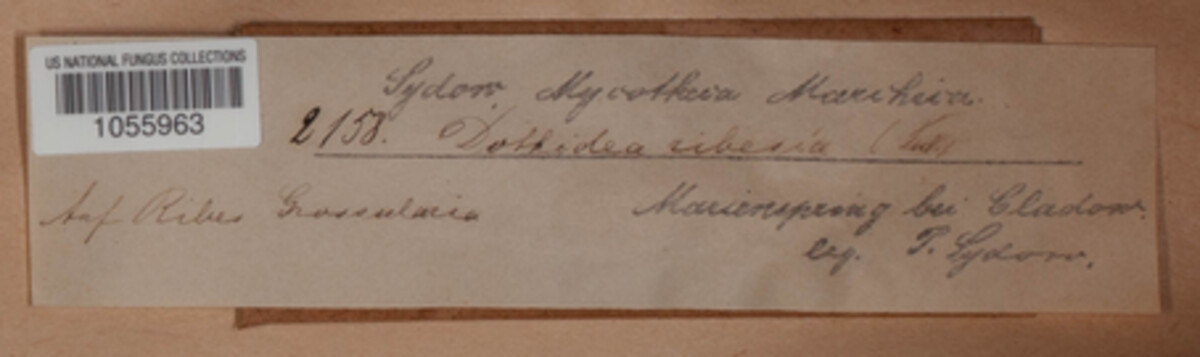 US NATIONAL FUNGUS COLLECTIONS
1055963
Sydow, Mycotheca Marchica.
2158. Dothidea ribesia
Auf Ribes Grossularia
Marienspring bei Cladow.
leg. P. Sydow.